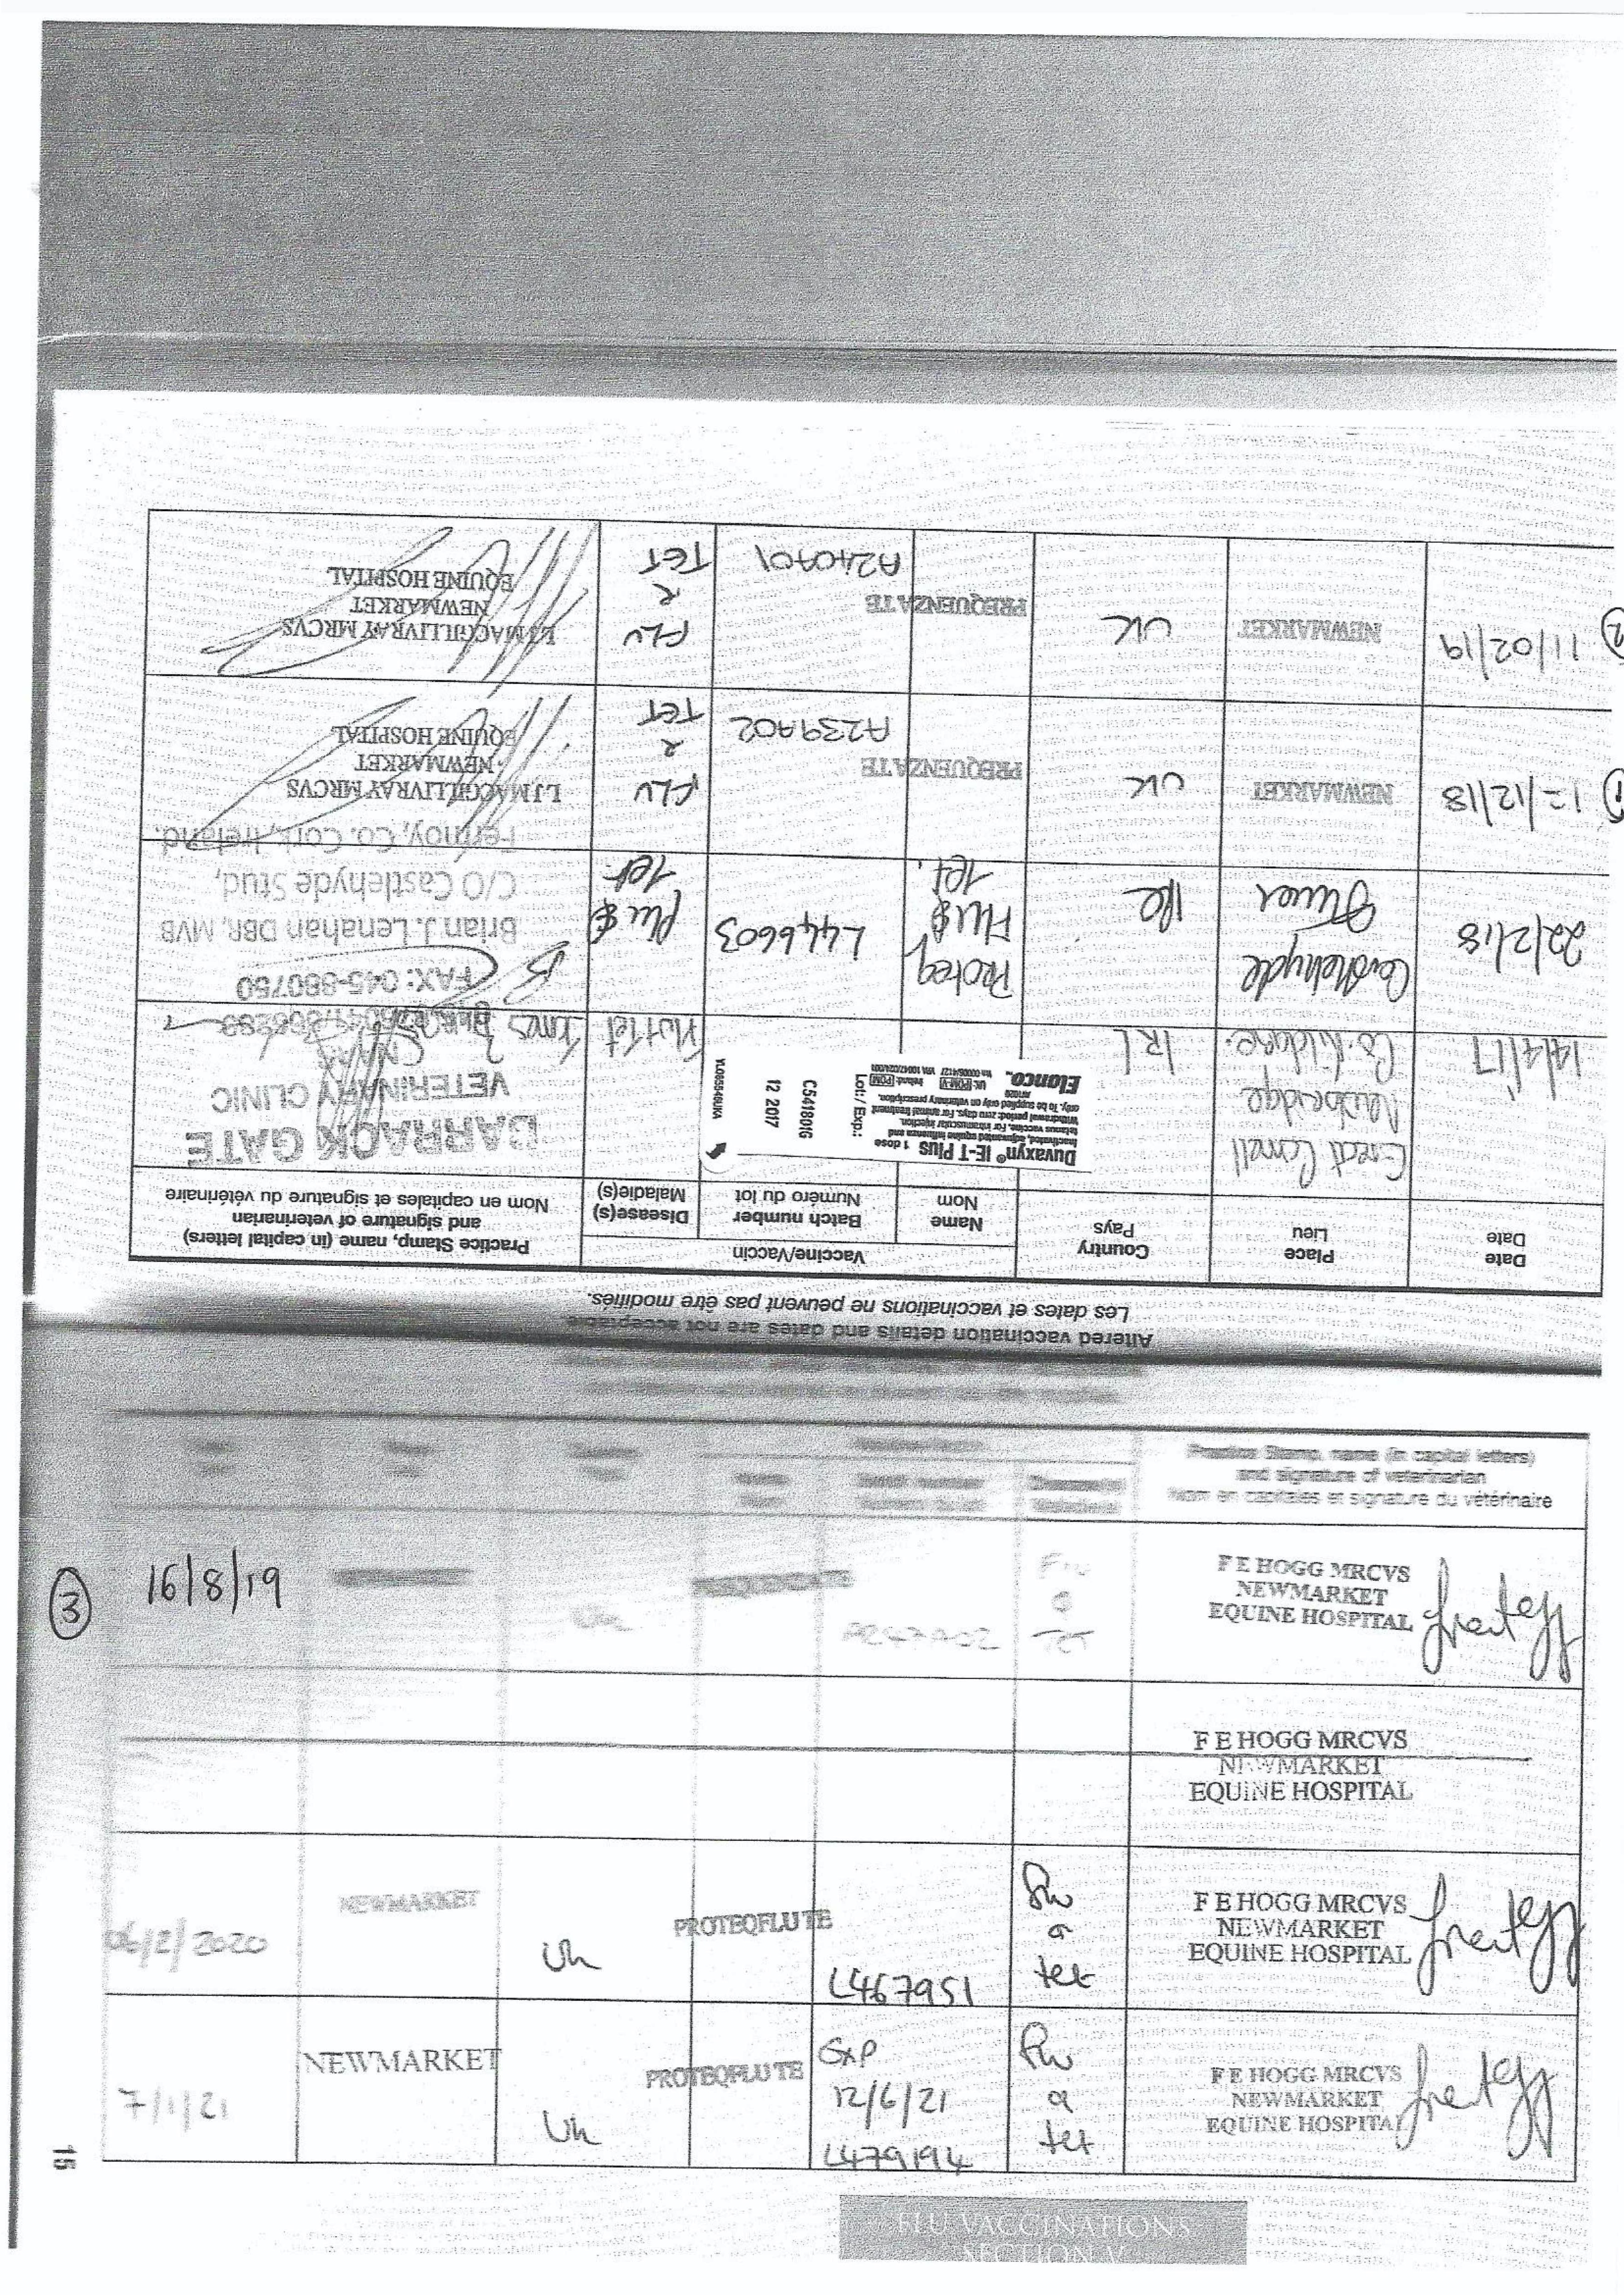 Altered vaccination details and dates are not acceptable.
Les dates et vaccinations ne peuvent pas être modifiés.
Date
Date
Place
Lieu
Country
Pays
Vaccine/Vaccin
Name
Nom
Batch number
Numéro du lot
Disease(s)
Maladie(s)
Practice Stamp, name (in capital letters)
and signature of veterinarian
Nom en capitales et signature du vétérinaire
14/4/17
Great Connell
Newbridge
Co. Kildare.
IRL
Duvaxyn® IE-T Plus 1 dose
Inactivated, adjuvanted equine influenza and
tetanus vaccine. For intramuscular injection.
Withdrawal period: zero days. For animal treatment
only. To be supplied only on veterinary prescription.
Elanco
Lot:/ Exp.:
C541801G
12 2017
Flu+Tet
BARRACK GATE
VETERINARY CLINIC
FAX: 045-880780
22/2/18
Castlehyde
Ire
Proteq
Flu &
Tet.
L446603
Flu &
Tet.
Brian J. Lenahan DBR, MVB
C/O Castlehyde Stud,
Fermoy, Co. Cork, Ireland.
① 12/12/18
NEWMARKET
UK
PREQUENZA TE
A239A02
FLU
&
TET
L J MACGILLIVRAY MRCVS
NEWMARKET
EQUINE HOSPITAL
② 11/02/19
NEWMARKET
UK
PREQUENZA TE
A240A01
FLU
&
TET
L J MACGILLIVRAY MRCVS
NEWMARKET
EQUINE HOSPITAL
Practice Stamp, name (in capital letters)
and signature of veterinarian
Nom en capitales et signature du vétérinaire
③ 16/8/19
Uk
PREQUENZA TE
A247A02
Flu
&
Tet
F E HOGG MRCVS
NEWMARKET
EQUINE HOSPITAL
F E HOGG MRCVS
NEWMARKET
EQUINE HOSPITAL
06/2/2020
NEWMARKET
Uk
PROTEQFLU TE
L467951
Flu
&
tet
F E HOGG MRCVS
NEWMARKET
EQUINE HOSPITAL
7/1/21
NEWMARKET
Uk
PROTEQFLU TE
Exp
12/6/21
L479194
Flu
&
tet
F E HOGG MRCVS
NEWMARKET
EQUINE HOSPITAL
15
FLU VACCINATIONS
SECTION V